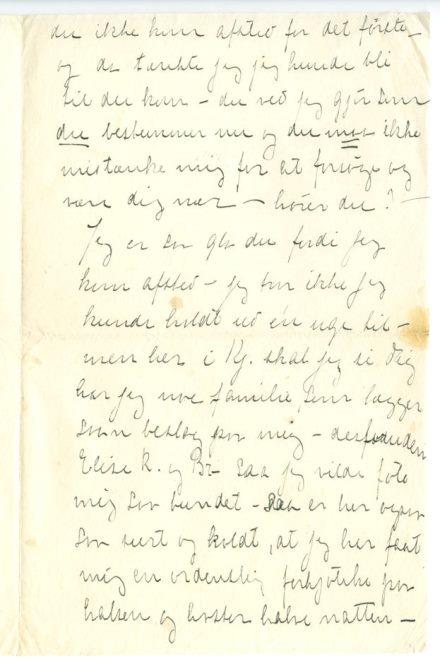 du ikke kom afsted for det første
og da tænkte jeg jeg kunde bli
til du kom – du ved jeg gjør som
du bestemmer nu og du maa ikke
mistænke mig for at forsøge og
være dig nær – hører du? –
Jeg er saa glad du fordi jeg
kom afsted – jeg tror ikke jeg
kunde holdt ud én uge til –
men her i Kj. skal jeg si dig
har jeg noe familie som lægger
saan beslag paa mig – desforuden
Elise K. og Br– saa jeg vilde føle
mig saa bundet – saa er her ogsaa
saa surt og koldt, at jeg har faat
mig en ordentlig forkjølelse paa
halsen og hoster halve natten –